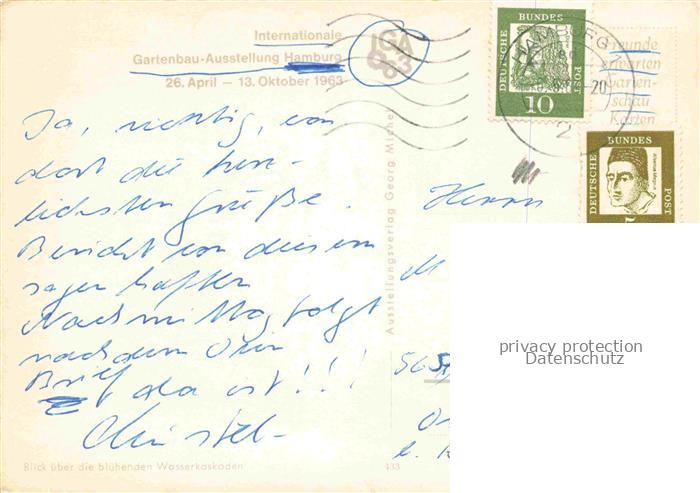 Internationale
Gartenbau-Ausstellung Hamburg
26. April – 13. Oktober 1963
IGA
63
DEUTSCHE BUNDES POST
10
HAMBURG
20
2
Freunde
erwarten
Garten-
schau
Karten
DEUTSCHE BUNDES POST
Ja, richtig, von
dort die herz-
lichsten Grüße.
Bericht von diesem
sagenhaften
Nachmittag folgt
nachdem Dein
Brief da ist!!!
Christel-
Herrn
M
565
Ausstellungsverlag Georg Michel
Blick über die blühenden Wasserkaskaden
433
privacy protection
Datenschutz